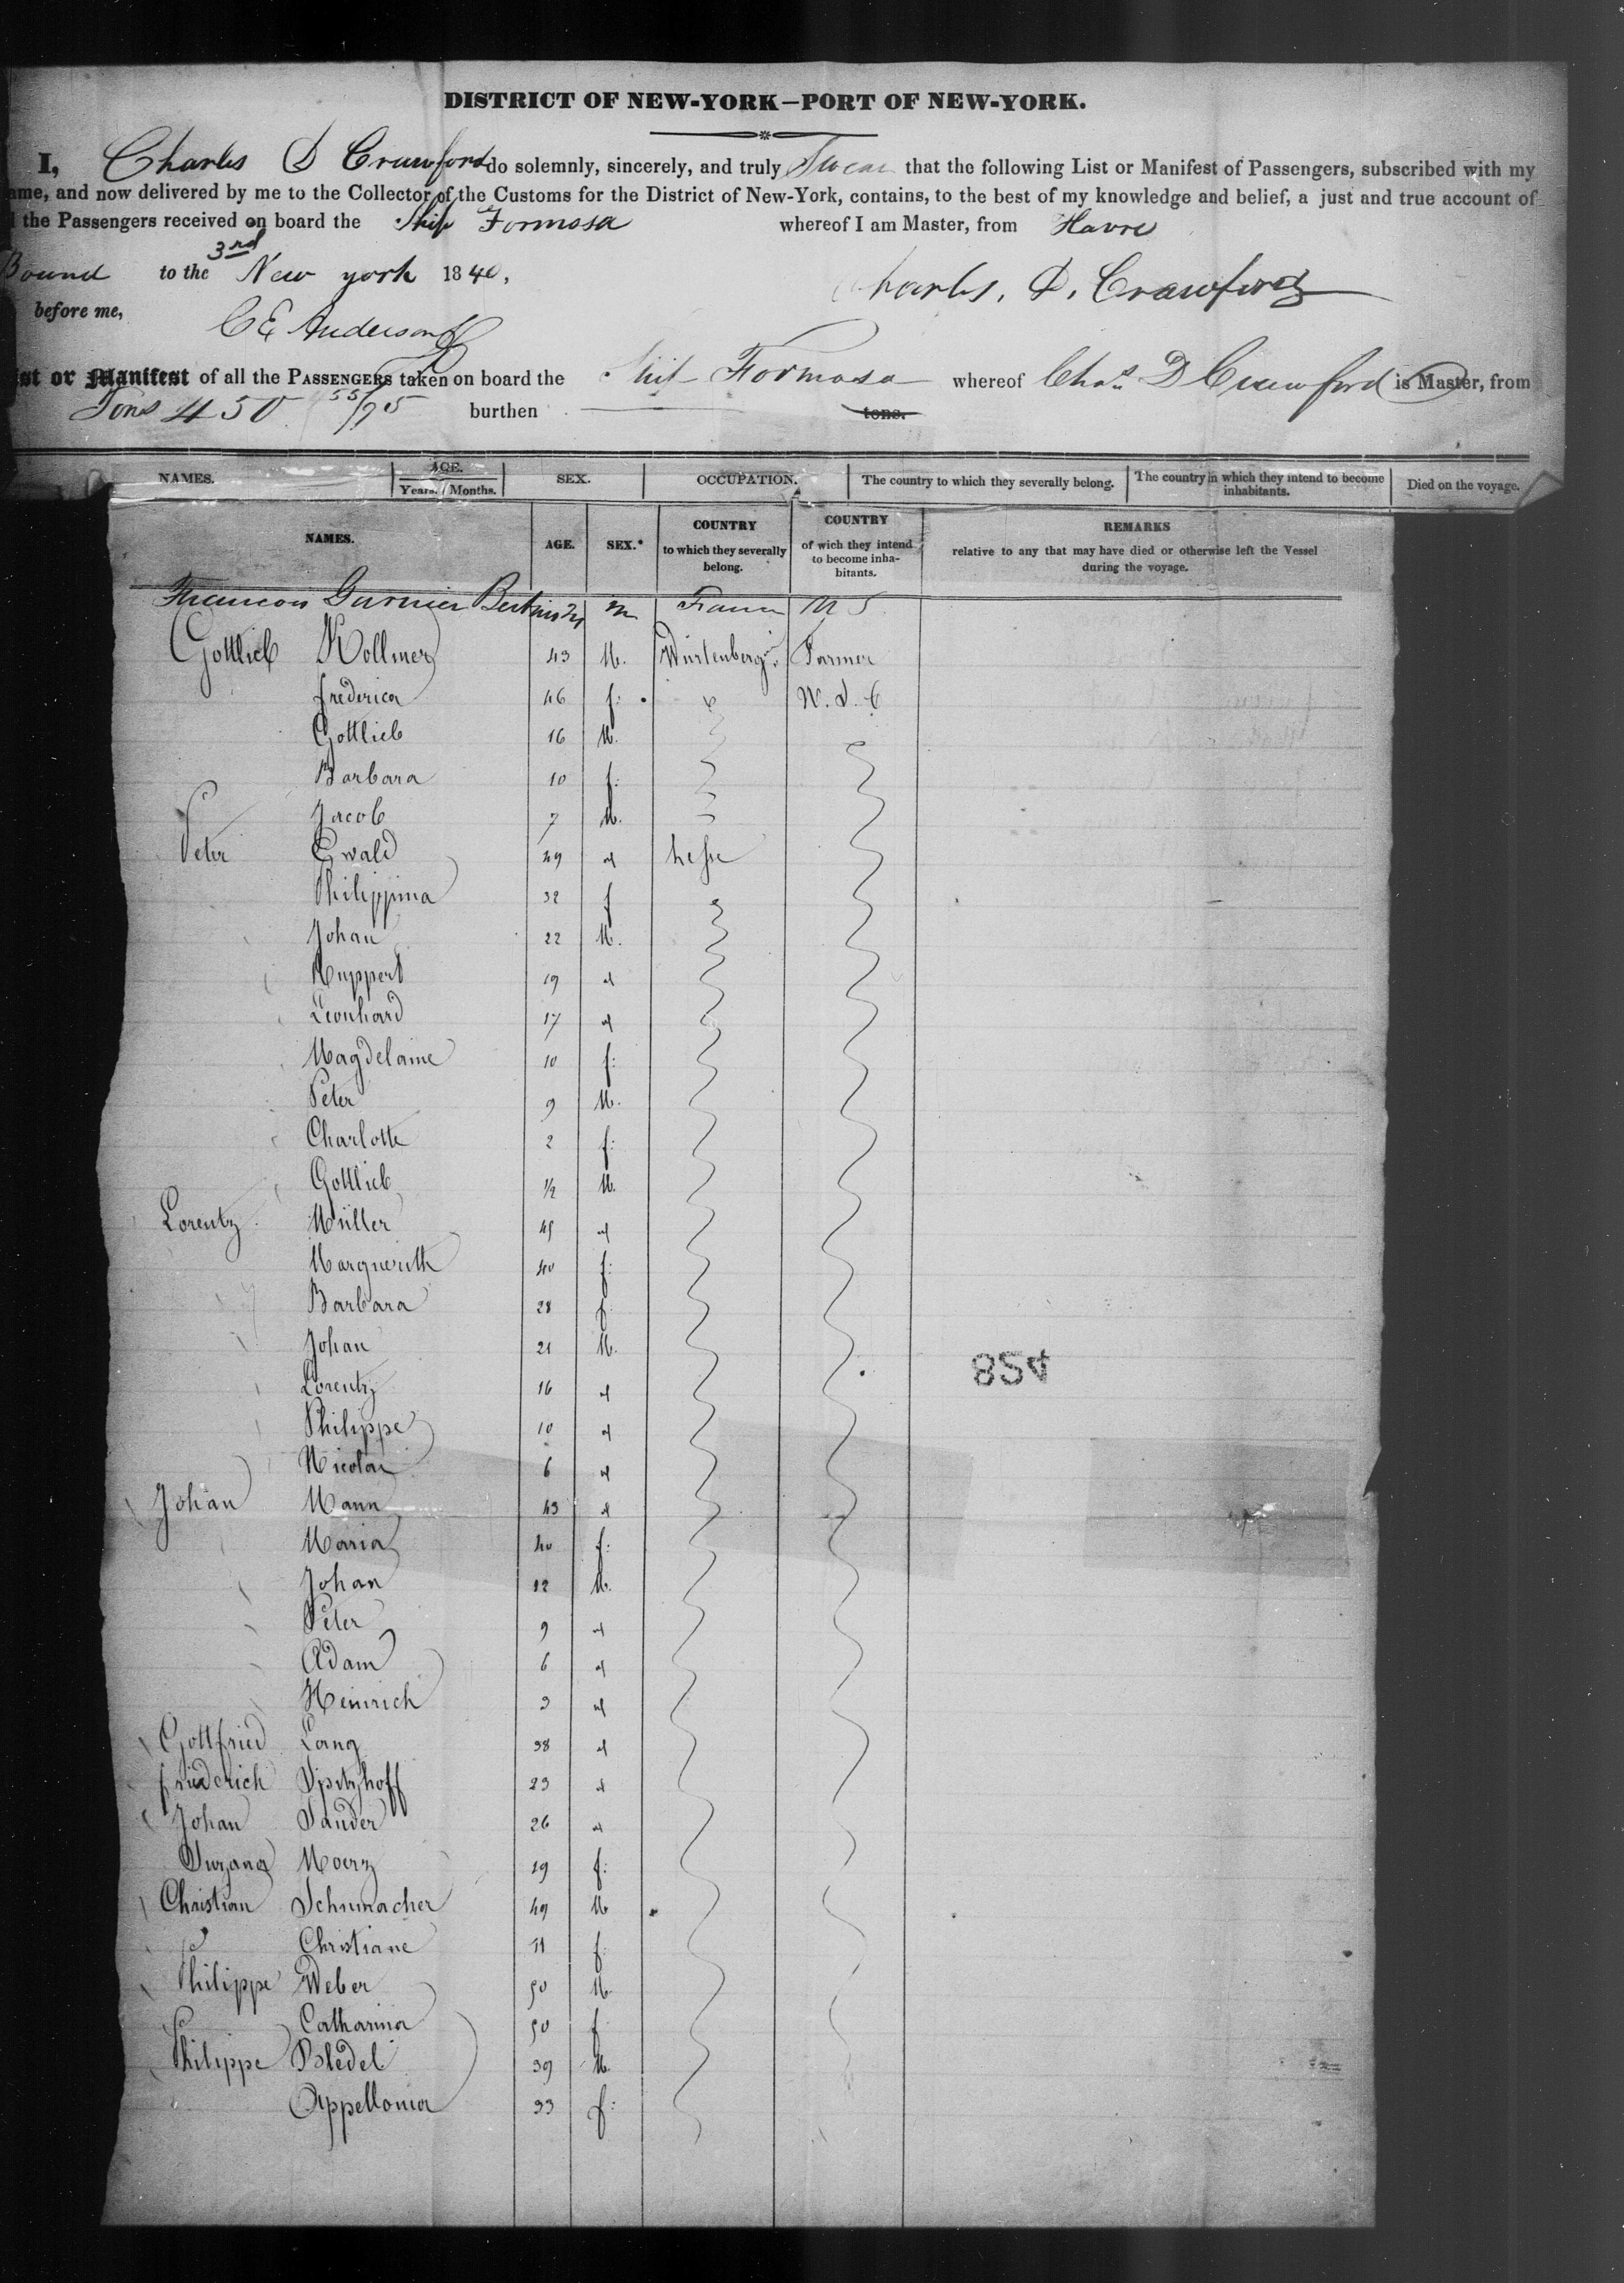 DISTRICT OF NEW-YORK—PORT OF NEW-YORK.
I, Charles D Crawford do solemnly, sincerely, and truly Swear that the following List or Manifest of Passengers, subscribed with my
ame, and now delivered by me to the Collector of the Customs for the District of New-York, contains, to the best of my knowledge and belief, a just and true account of
l the Passengers received on board the Ship Formosa whereof I am Master, from Havre
Bound to the 3rd New york 1840,
Charles, D, Crawford
before me,
C E Anderson
st or Manifest of all the PASSENGERS taken on board the Ship Formosa whereof Chas D Crawford is Master, from
Tons 450 55/95 burthen tons.
NAMES. AGE. Years. Months. SEX. OCCUPATION. The country to which they severally belong. The country in which they intend to become inhabitants. Died on the voyage.
NAMES. AGE. SEX. COUNTRY to which they severally belong. COUNTRY of wich they intend to become inha-bitants. REMARKS relative to any that may have died or otherwise left the Vessel during the voyage.
Garnier m France U S
Gottlieb Kollmer 43 M. Würtenberg Farmer
frederica 46 f: U. S. C
Gottlieb 16 M.
Barbara 10 f:
Jacob 7 M.
Peter Ewald 49 " hesse
Philippina 32 f
Johan 22 M.
Ruppert 19 "
Leonhard 17 "
Magdelaine 10 f:
Peter 9 M.
Charlotte 2 f:
Gottlieb 1/2 M.
Lorentz Müller 45 "
Marguerith 40 f:
Barbara 28 f
Johan 21 M.
Lorentz 16 "
Philippe 10 "
Nicolai 6 "
Johan Mann 43 "
Maria 40 f:
Johan 12 M.
Peter 9 "
Adam 6 "
Heinrich 3 "
Gottfried Lang 38 "
friederich Spitzhoff 23 "
Johan Sander 26 "
Suzana Moerz 19 f:
Christian Schumacher 49 M
Christiane 11 f:
Philippe Weber 50 M.
Catharina 50 f
Philippe Bledel 39 M.
Appellonia 33 f:
854